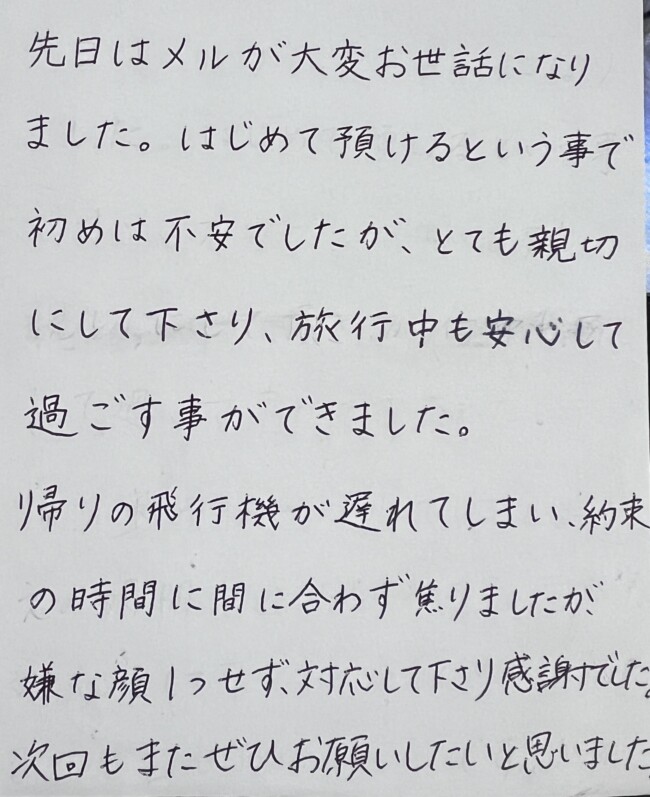 先日はメルが大変お世話になり
ました。はじめて預けるという事で
初めは不安でしたが、とても親切
にして下さり、旅行中も安心して
過ごす事ができました。
帰りの飛行機が遅れてしまい、約束
の時間に間に合わず焦りましたが、
嫌な顔1つせず、対応して下さり感謝でした。
次回もまたぜひお願いしたいと思いました